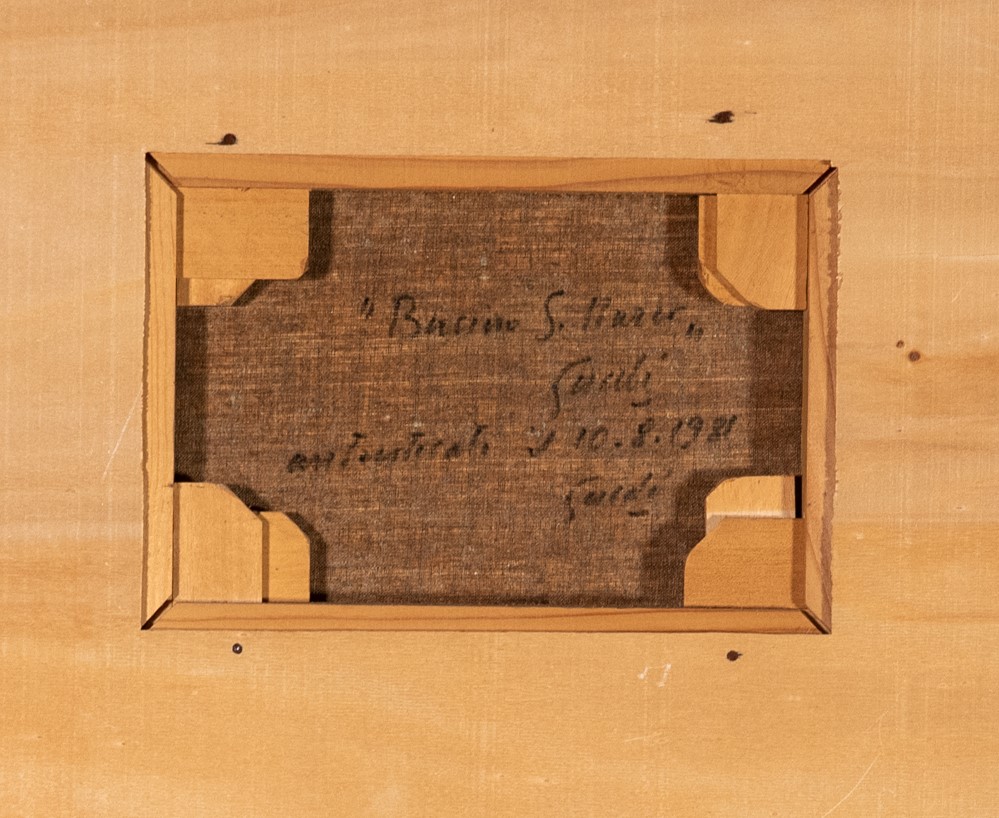 "Bacino S. Marco"
Guidi
autenticato il 10.8.1981
Guidi